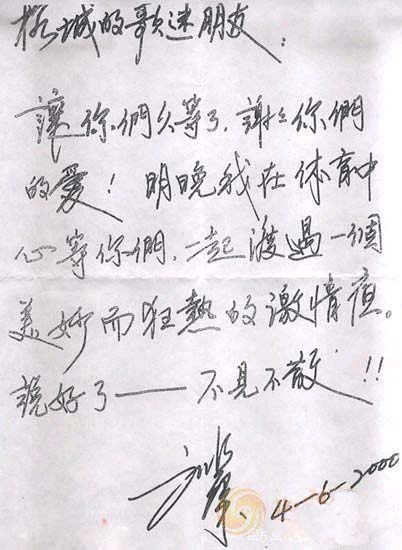 榕城的歌迷朋友：
讓你們久等了，謝謝你們
的愛！明晚我在体育中
心等你們，一起渡過一個
美妙而狂熱的激情夜。
說好了——不見不散!!
4-6-2000